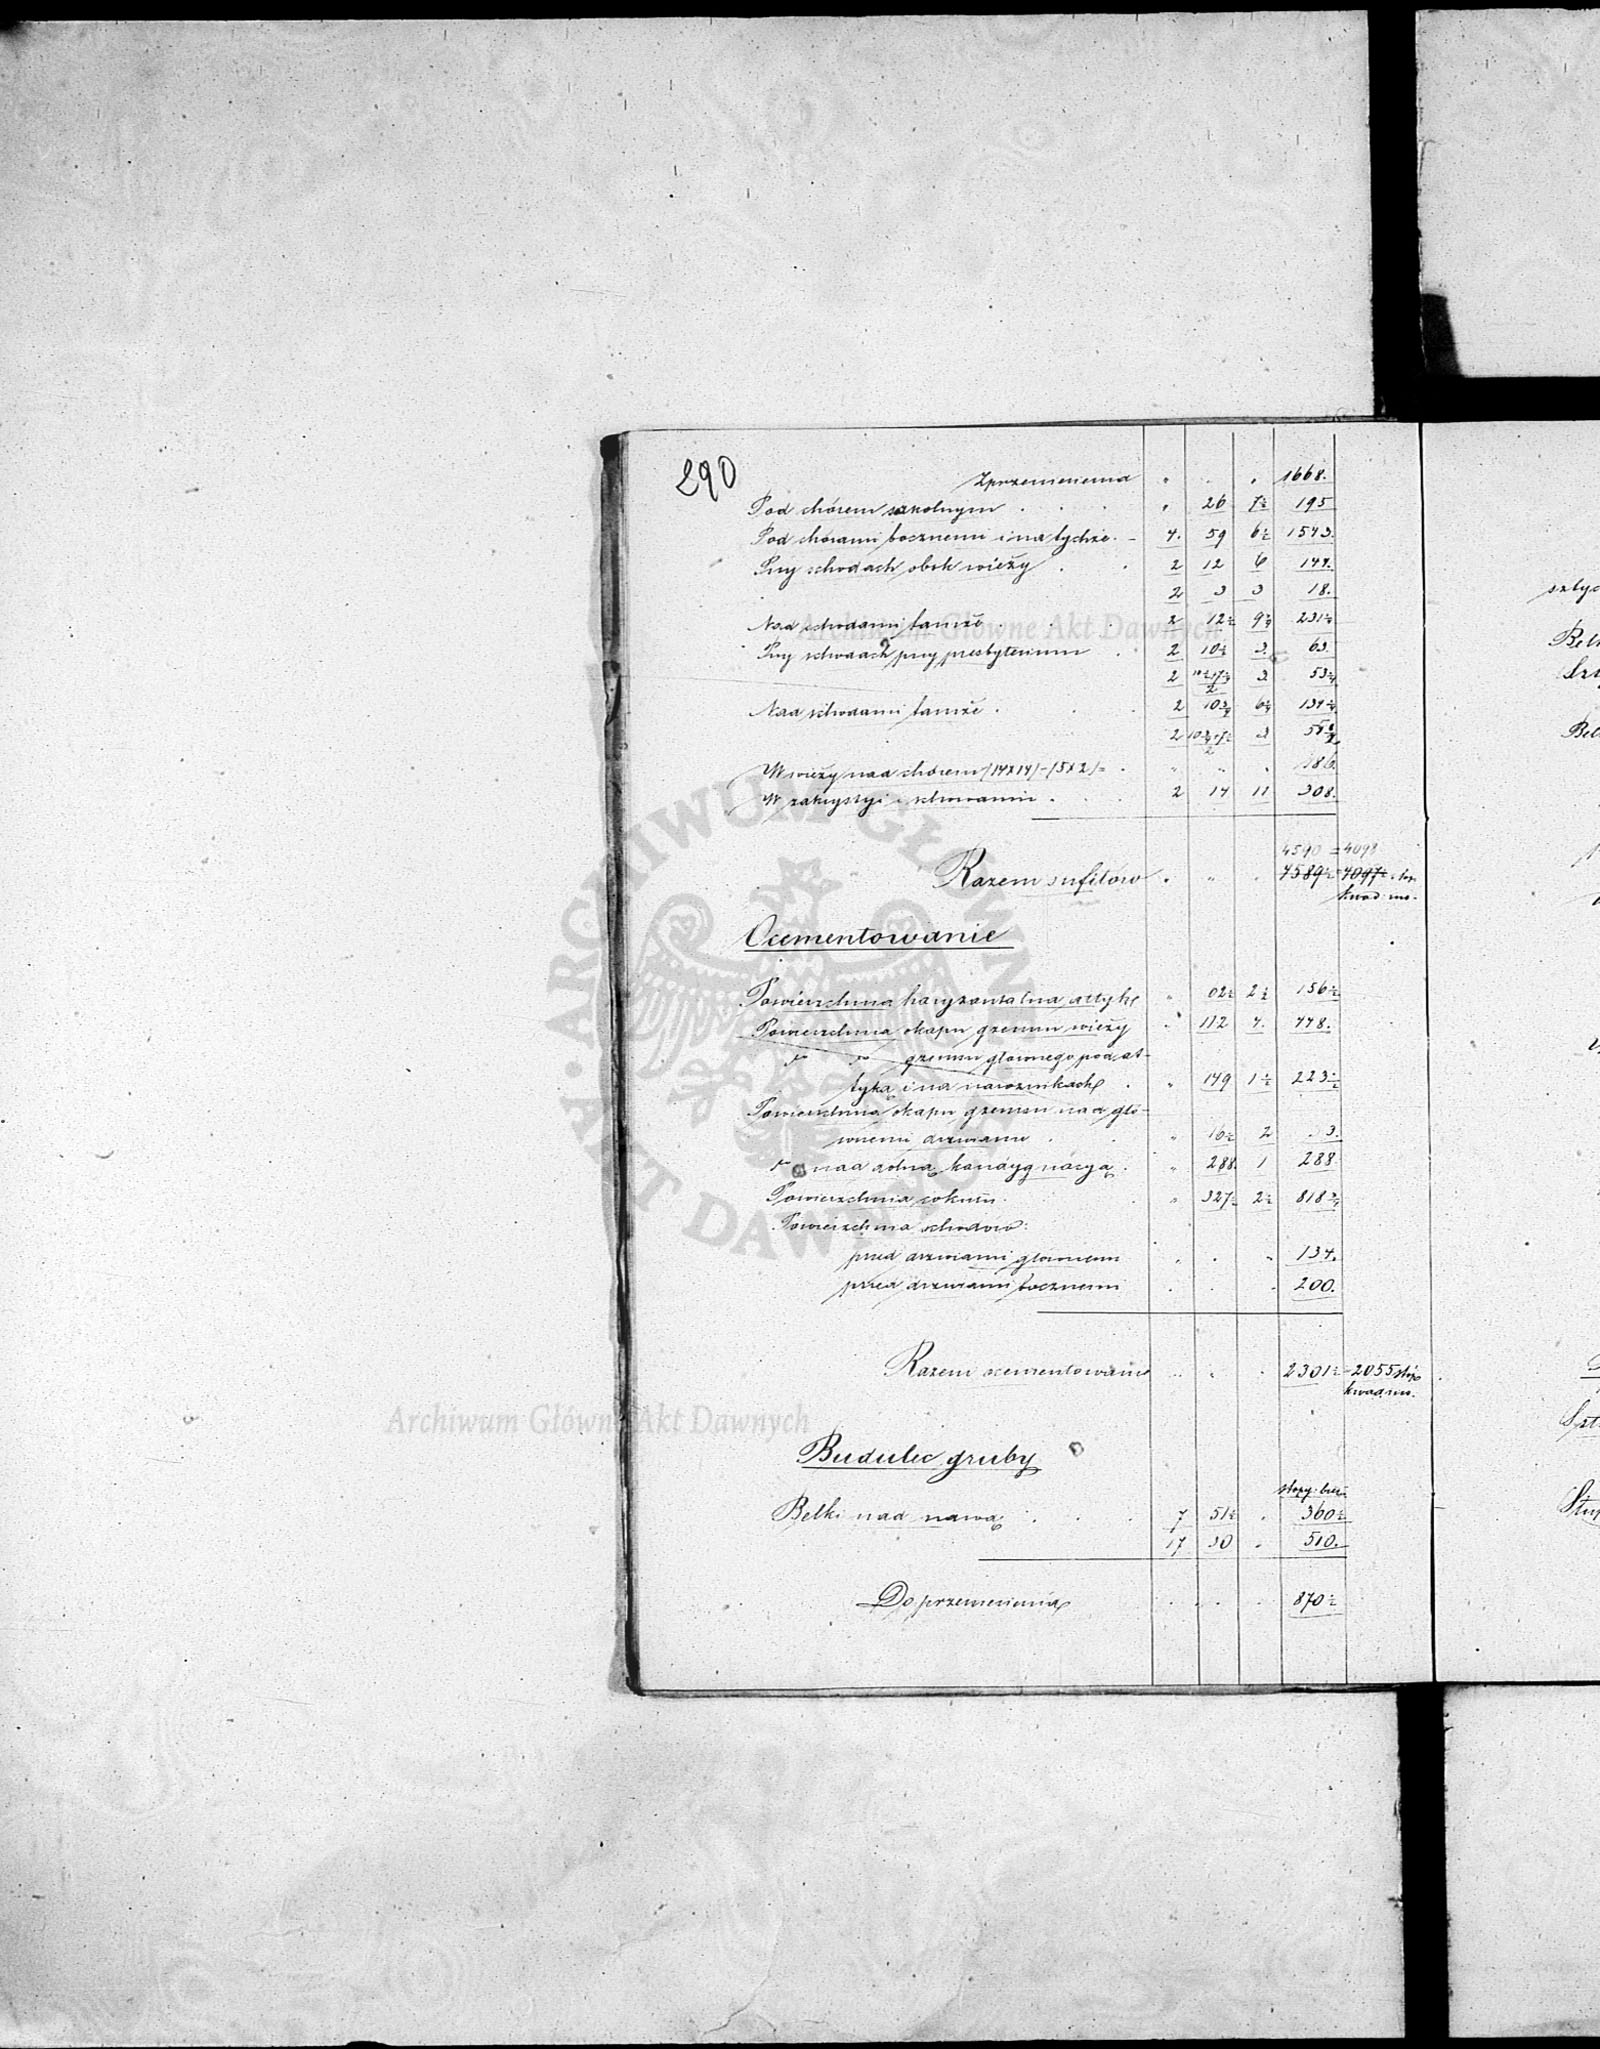 290
Z przeniesienia " . " 1668.
Pod chórem szkolnym . . . " 26 7½ 195
Pod chórami bocznemi i na tychże. - 4. 59 6½ 1543.
Przy schodach obok wieży . . 2 12 6 144.
2 3 3 18.
Nad schodami tamże . . . 2 12½ 9¼ 231¼
Przy schodach przy presbyterium . 2 10½ 3. 63.
2 3 53¾
Nad schodami tamże . . . 2 10¾ 6¼ 134¼
2 3
W wieży nad chórem (14x14)-(5x2)= . " " . 186.
W zakrystyi i schowaniu . . . 2 14 11 308.
4590 = 4098
Razem sufitów . " . 4589½ = 4097½ stóp
kwad: mo.
Ocementowanie
Powierzchnia horyzontalna attyki " 62½ 2½ 156½
Powierzchnia okapu gzemsu wieży " 112 4. 448.
" " gzemsu głównego pod at-
tyką i na narożnikach . " 149 1½ 223½
Powierzchnia okapu gzemsu nad głó-
wnemi drzwiami . . " 16½ 2 33.
" nad dolną kondygnacyą . " 288. 1 288.
Powierzchnia cokułu . . " 327½ 2½ 818¾
Powierzchnia schodów:
przed drzwiami głównemi " . " 134.
przed drzwiami bocznemi . . . 200.
Razem ocementowania " . . 2301½ = 2055 stóp
kwad. mo.
Budulec gruby
stopy bież.
Belki nad nawą . . . 7 51½ . 360½
17 30 . 510.
Do przeniesienia . . . . 870½
Archiwum Główne Akt Dawnych
Archiwum Główne Akt Dawnych
ARCHIWUM GŁÓWNE · AKT DAWNYCH ·